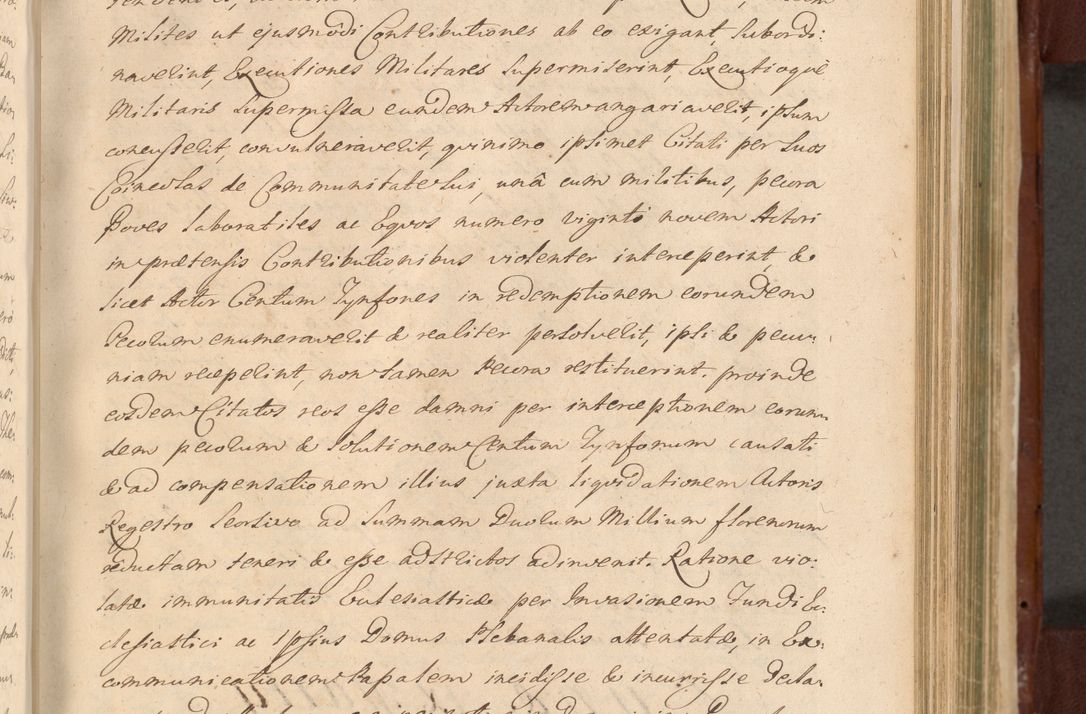 Milites ut ejusmodi Contributiones ab eo exigant, subordi:
naverint, Executiones Militares supermiserint, Executioqve
Militaris supermissa eundem Actorem angariaverit, ipsum
concusserit, convulneraverit, qvinimo ipsimet Citati per suos
de Communitate sui, unâ cum militibus, pecora
Boves laboratiles ac Eqvos numero viginti novem Actori
in prætensis Contributionibus violenter interceperint, &
licet Actor Centum Tynfones in redemptionem eorundem
Pecorum enumeraverit & realiter persolverit, ipsi & pecu-
niam receperint, non tamen Pecora restituerint. proinde
eosdem Citatos reos esse damni per interceptionem eorun-
dem pecorum & solutionem Centum Tynfonum causati
& ad compensationem illius juxta liqvidationem Actoris
Regestro seorsivo ad summam Duorum Millium florenorum
reductam teneri & esse adstrictos adinvenit. Ratione vio:
latæ immunitatis Ecclesiasticæ per Invasionem Fundi Ec:
clesiastici ac Ipsius Domus Plebanalis attentatæ, in Ex:
communicationem Papalem incidisse & incurrisse Decla-